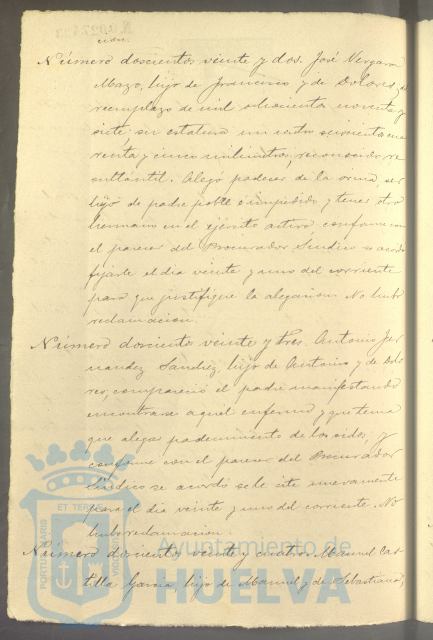 cion.
Número doscientos veinte y dos. José Vergara
Mazo, hijo de Francisco y de Dolores, del
reemplazo de mil ochocientos noventa y
siete, su estatura un metro seiscientos cua
renta y cinco milimetros, reconocido re
sultó útil. Alegó padecer de la orina, ser
hijo de padre pobre é impedido y tener otro
hermano en el ejército activo, conforme con
el parecer del Procurador Síndico se acordó
fijarle el dia veinte y uno del corriente
para que justifique la alegacion. No hubo
reclamacion.
Número doscientos veinte y tres. Antonio Fer
nandez Sandez, hijo de Antonio y de Dolo
res, compareció el padre manifestando
encontrarse aquel enfermo y que tenia
que alegar padecimiento de los oidos, y
conforme con el parecer del Procurador
Síndico se acordó se le cite nuevamente
para el dia veinte y uno del corriente. No
hubo reclamacion.
Número doscientos veinte y cuatro. Manuel Cas
tilla Garcia, hijo de Manuel y de Sebastiana,
PORTUS MARIS
ET TERRAE
Ayuntamiento de
HUELVA